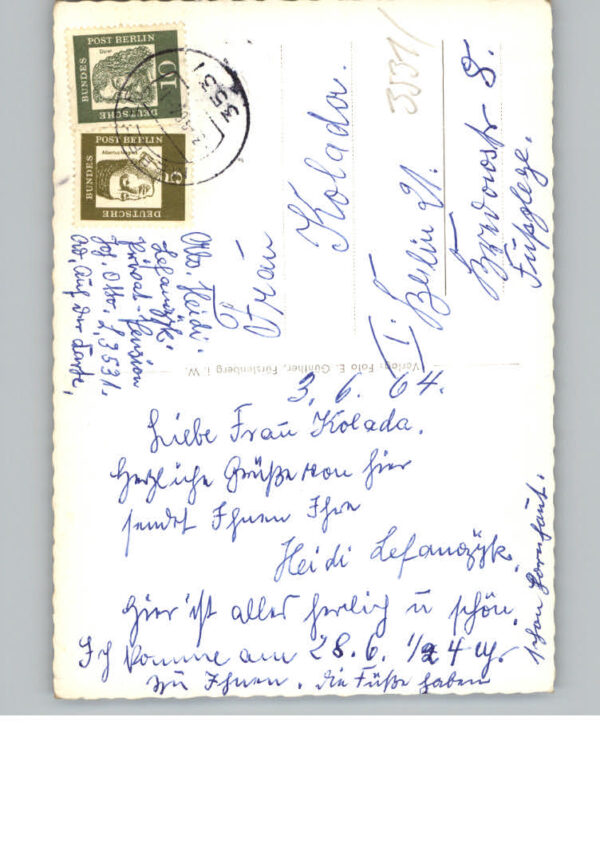 3.6.64.
Liebe Frau Kolada.
Herzliche Grüße von hier
sendet Ihnen Ihre
Heidi Lefanczyk.
Hier ist alles herlich u schön.
Ich komme am 28.6. 1/2 4 U.
zu Ihnen. die Füße haben
schon Hornhaut.
Frau
Kolador.
I. Berlin 21.
Bredowstr 8.
Fußplege.
3531/
Abs. Heidi
Lefanczyk.
Privat-Pension
3531.
auf der Karte,
Verlag: Foto E. Günther, Fürstenberg i. W.
DEUTSCHE BUNDES POST BERLIN
Dürer
10
DEUTSCHE BUNDES POST BERLIN
Albertus Magnus
3531